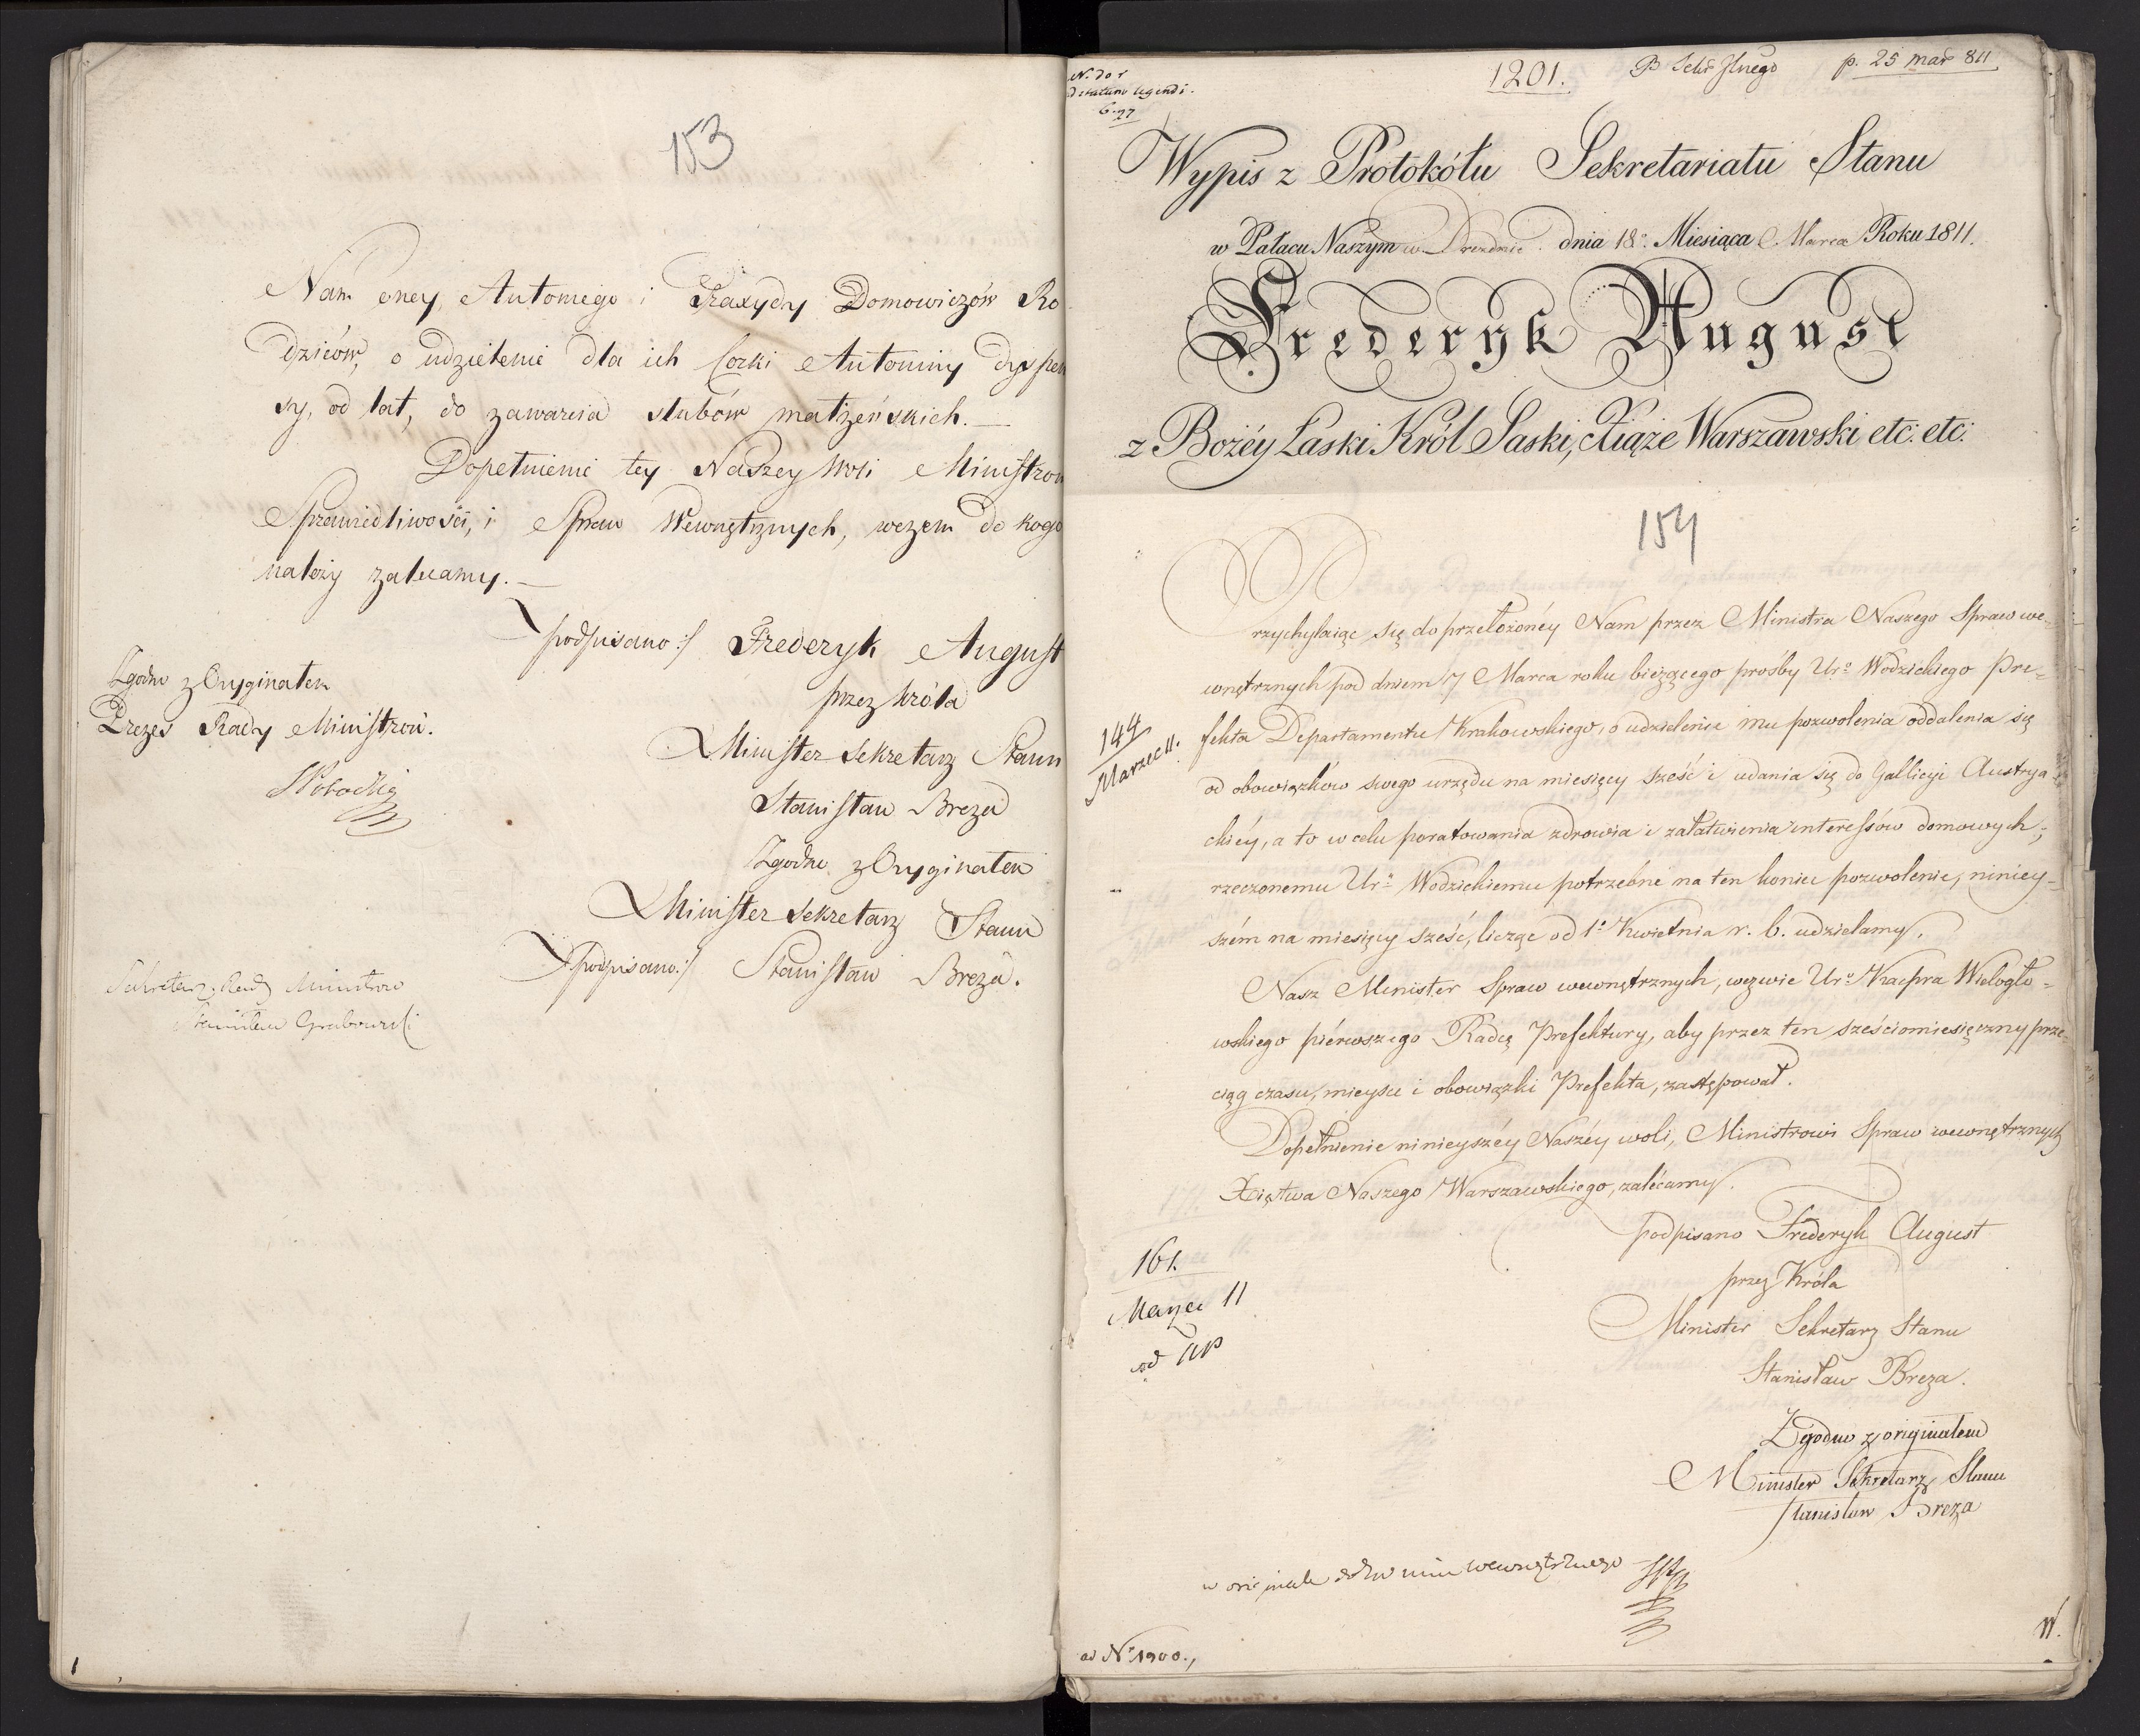 153
Nam oney, Antoniego i Praxydy Domowiczów Ro
dziców, o udzielenie dla ich Corki Antoniny dyspen
sy, od lat, do zawarcia slubów małżeńskich.—
Dopełnienie tey Naszey Woli Ministrow
Sprawiedliwości, i Spraw Wewnętrznych, wczem do kogo
należy zalecamy.—
podpisano:/ Frederyk August
przez króla
Minister Sekretarz Stanu
Stanisław Breza
Zgodno z Oryginałem
Minister Sekretarz Stanu
/podpisano:/ Stanisław Breza.
Zgodno z Oryginałem
Prezes Rady Ministrow.
SPotocki
Sekretarz Rady Ministrow
Stanisław Grabowski
1201.
p. 25 mar 811
Wypis z Protokółu Sekretariatu Stanu
w Pałacu Naszym w Dreznie. dnia 18° Miesiąca Marca Roku 1811.
Frederyk August
z Bożéy Łaski Król Saski, Xiąże Warszawski etc: etc:
154
Przychylaiąc się do przełożonéy Nam przez Ministra Naszego Spraw we-
wnętrznych pod dniem 7 Marca roku bieżącego prośby Ur° Wodzickiego Pre-
fekta Departamentu Krakowskiego, o udzielenie mu pozwolenia oddalenia się
od obowiązków swego urzędu na miesięcy sześć i udania się do Gallicyi Austrya-
ckiéy, a to w celu poratowania zdrowia i załatwienia interessów domowych;
rzeczonemu Ur° Wodzickiemu potrzebne na ten koniec pozwolenie, niniey-
szém na miesięcy sześć, licząc od 1° Kwietnia r. b. udzielamy.
Nasz Minister Spraw wewnętrznych, wezwie Ur° Kacpra Wielogło-
wskiego piérwszego Radcę Prefektury, aby przez ten sześciomiesięczny prze-
ciąg czasu, mieysce i obowiązki Prefekta, zastępował.
Dopełnienie ninieyszéy Naszéy woli, Ministrowi Spraw wewnętrznych
Xięstwa Naszego Warszawskiego, zalécamy.
144
Marzec 11.
161.
Marzec 11
podpisano Frederyk August
przez Króla
Minister Sekretarz Stanu
Stanisław Breza.
Zgodno z originałem
Minister Sekretarz Stanu
Stanisław Breza
ad N° 1900.,
W.